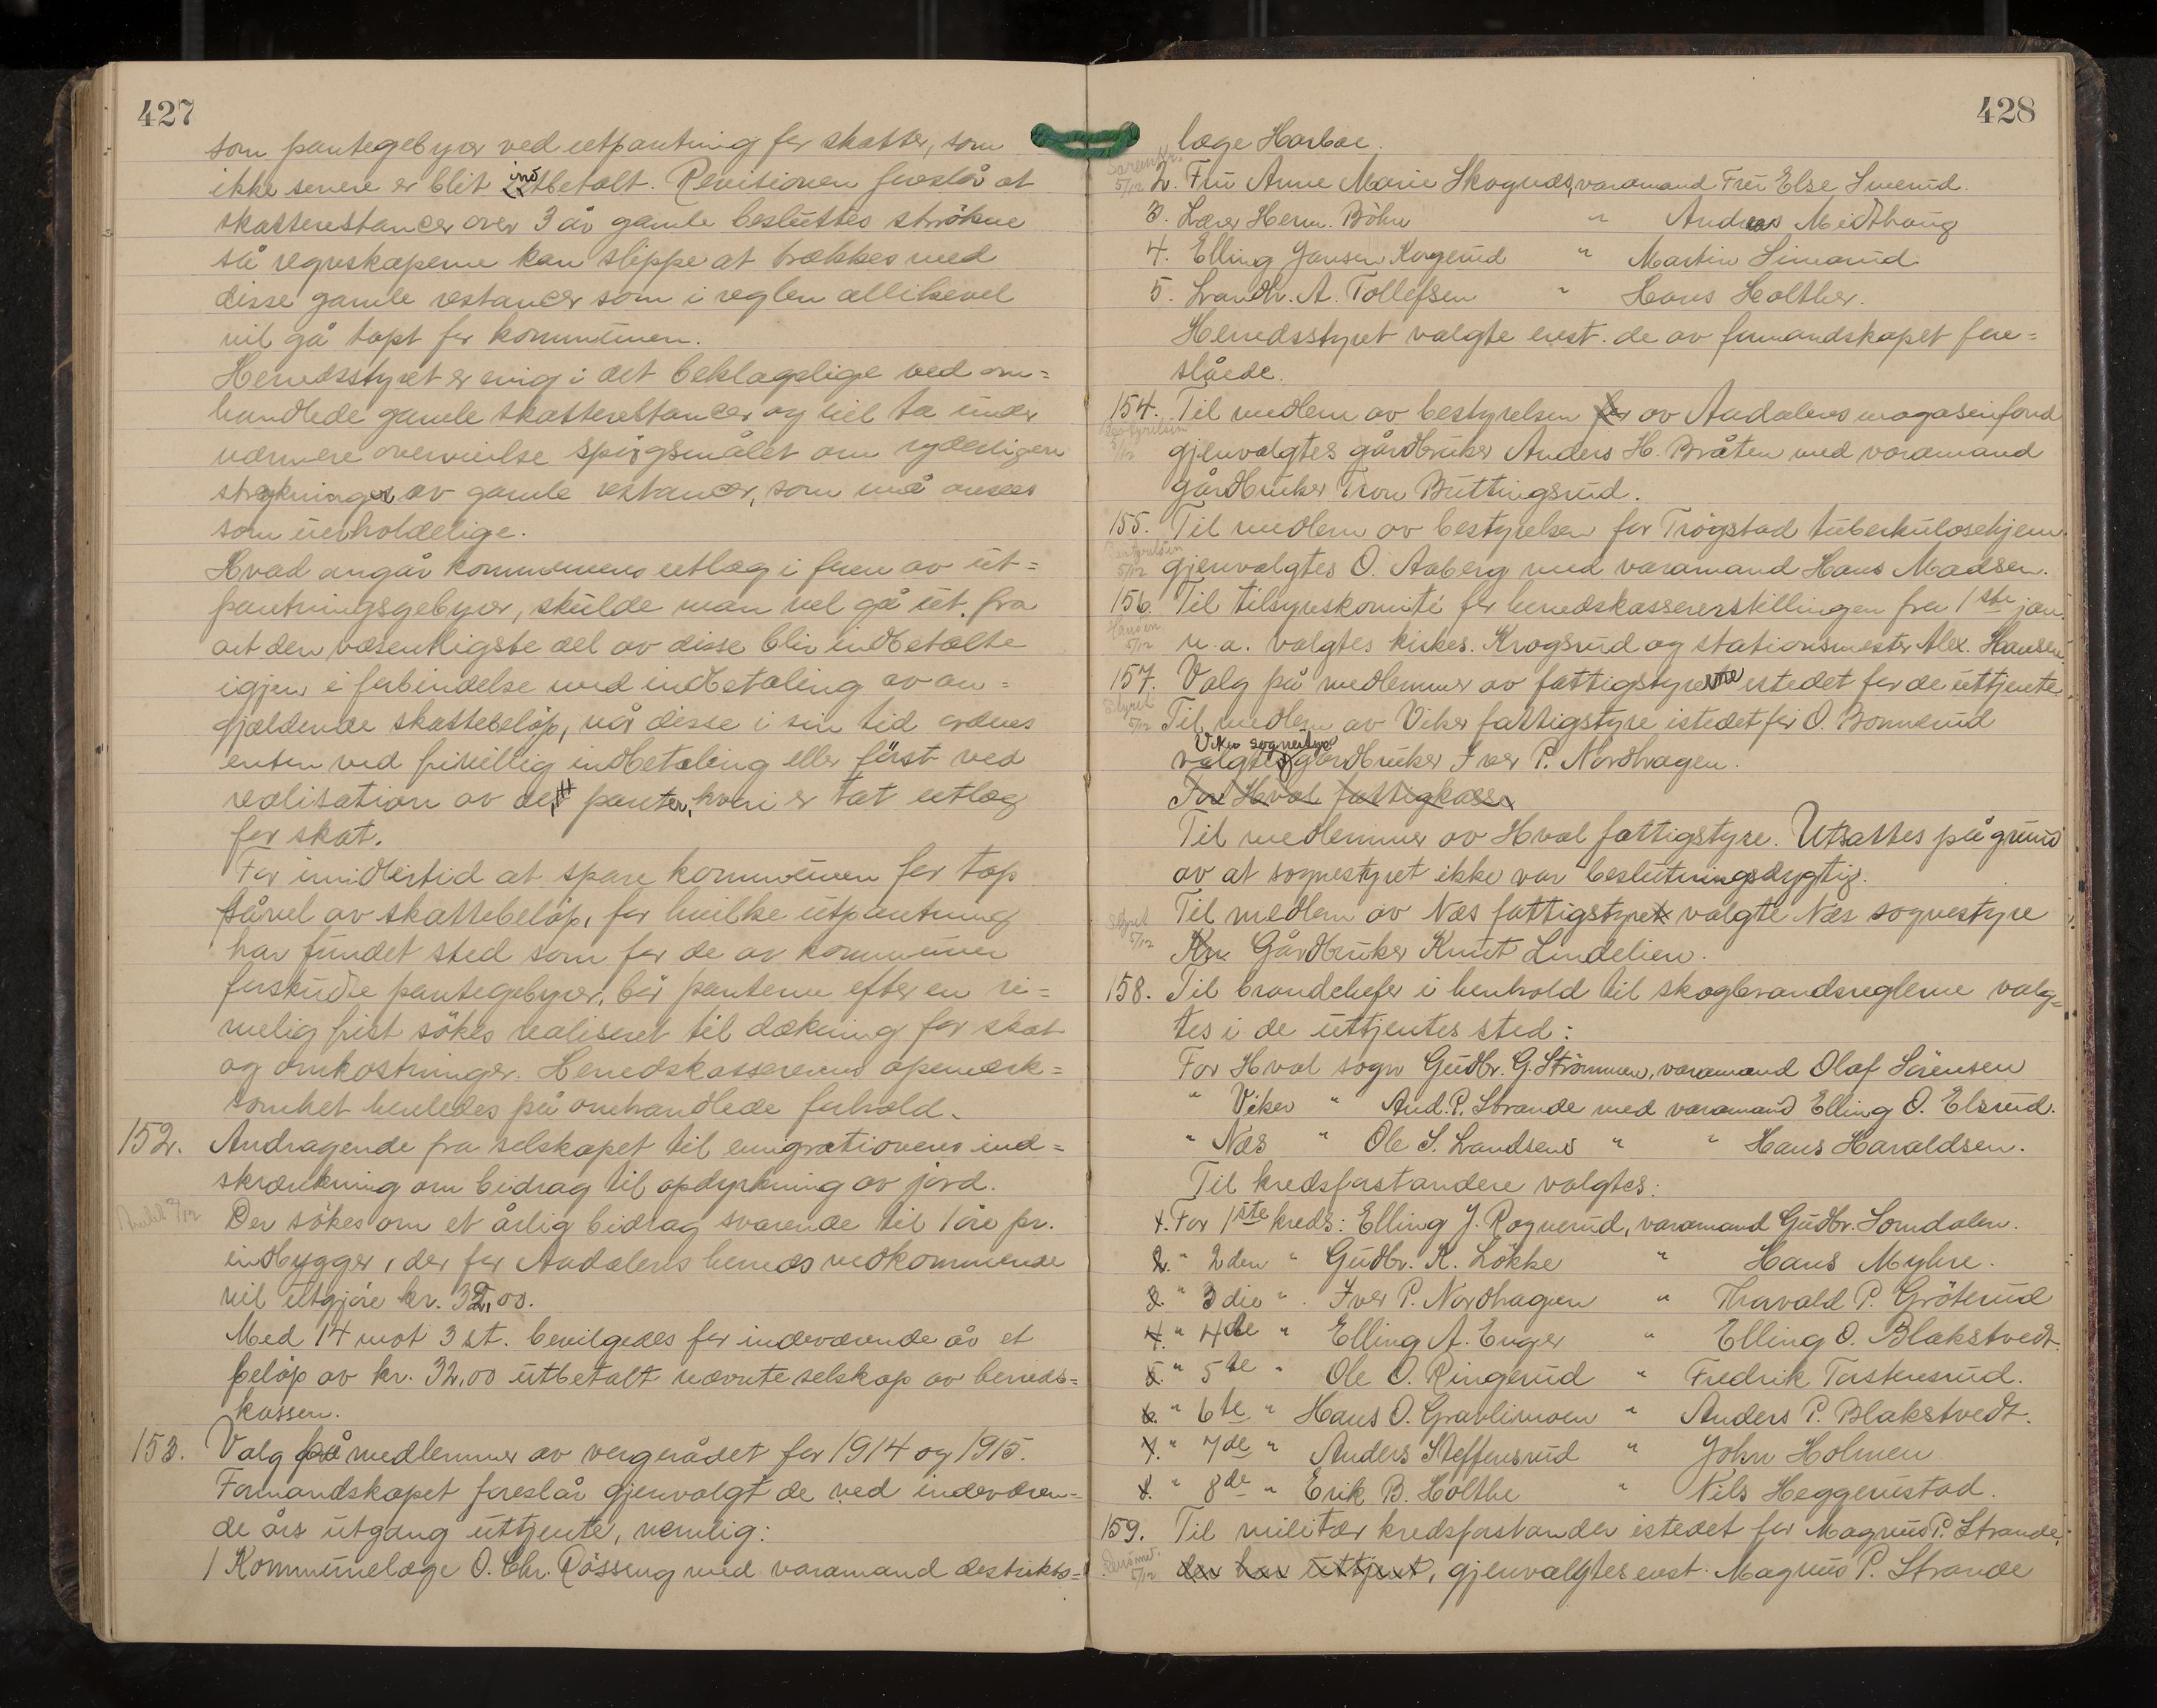 427
som pantegebyrer ved utpantning for skatter, som
ikke senere er blit indbetalt. Revisionen foreslår at
skatterestancer over 3 år gamle besluttes strökne
så regnskaperne kan slippe at trækkes med
disse gamle restancer som i reglen allikevel
vil gå tapt for kommunen.
Herredsstyret er enig i det beklagelige ved om=
handlede gamle skatterestancer og vil ta under
nærmere overveielse spörgsmålet om yderligere
strykninger av gamle restancer, som må ansees
som uerholdelige.
Hvad angår kommunens utlæg i form av ut=
pantningsgebyrer, skulde man vel gå ut fra
at den væsentligste del av disse blir indbetalte
igjen i forbindelse med indbetaling av an=
gjældende skattebelöp, når disse i sin tid ordnes
enten ved frivillig indbetaling eller först ved
realisation av det panter, hvori er tat utlæg
for skat.
For imidlertid at spare kommunen for tap
såvel av skattebelöp, for hvilke utpantning
har fundet sted som for de av kommunen
forskudte pantegebyrer, bör panterne efter en ri=
melig frist sökes realiseret til dækning for skat
og omkostninger. Herredskassererens opmerk=
somhet henledes på omhandlede forhold.
152. Andragende fra selskapet til emigrationens ind=
skrænkning om bidrag til opdyrkning av jord.
Der sökes om et årlig bidrag svarende til 1 öre pr.
indbygger, der for Aadalens herreds vedkommende
vil utgjöre kr. 32,00.
Med 14 mot 3 st. bevilgedes for indeværende år et
belöp av kr. 32,00 utbetalt nævnte selskap av herreds=
kassen.
153. Valg på medlemmer av vergerådet for 1914 og 1915.
Formandskapet foreslår gjenvalgt de ved indeværen=
de års utgang uttjente, nemlig:
1 Kommunelæge O. Chr. Rösseng med varamand destrikts=
428
læge Harboe.
2. Fru Anne Marie Skognes, varamand Fru Else Smerud.
3. Lærer Herm. Böhn " Andreas Midthaug
4. Elling Jansen Kongerud " Martin Simarud.
5. Landh. A. Tollefsen " Hans Holther.
Herredsstyret valgte enst. de av formandskapet fore=
slåede.
154. Til medlem av bestyrelsen for av Aadalens magasinfond
gjenvalgtes gårdbruker Anders H. Bråten med varamand
gårdbruker Tron Buttingsrud.
155. Til medlem av bestyrelsen for Trögstad tuberkulosehjem
gjenvalgtes O. Aaberg med varamand Hans Madsen.
156. Til tilsynskomité for herredskassererstillingen fra 1ste jan.
n. a. valgtes kirkes. Krogsrud og stationsmester Alex. Hansen.
157. Valg på medlemmer av fattigstyrerne istedet for de uttjente
Til medlem av Viker fattigstyre istedet for O. Bonnerud
Viker sognestyre
valgtes gårdbruker Iver P. Nordhagen.
For Hval fattigkasse
Til medlemmer av Hval fattigstyre. Utsattes på grund
av at sognestyret ikke var beslutningsdygtig.
Til medlem av Næs fattigstyret valgte Næs sognestyre
Kn. Gårdbruker Knut Lindelien.
158. Til brandchefer i henhold til skogbrandsreglerne valg=
tes i de uttjentes sted:
For Hval sogn Gudbr. G. Strömmen, varamand Olaf Sörensen
" Viker " And. P. Strande med varamand Elling O. Elsrud.
" Næs " Ole S. Landsend " " Hans Haraldsen.
Til kredsforstandere valgtes:
1. For 1ste kreds: Elling J. Rognerud, varamand Gudbr. Somdalen.
2. " 2den " Gudbr. K. Lökke " Hans Myhre.
3. " 3die " Iver P. Nordhagen " Thorvald P. Gröterud
4. " 4de " Elling A. Enger " Elling O. Blakstvedt.
5. " 5te " Ole O. Ringerud " Fredrik Torstensrud.
6. " 6te " Hans O. Gravlimoen " Anders P. Blakstvedt.
7. " 7de " Anders Steffensrud " John Holmen
8. " 8de " Erik B. Holthe " Nils Heggerustad.
159. Til militær kredsforstander istedet for Magnus P. Strande,
der har uttjent, gjenvalgtes enst. Magnus P. Strande